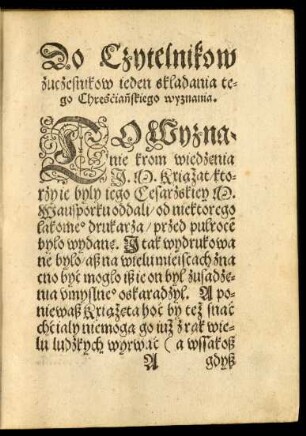 Do Czytelnikow
zuczesnikow ieden skladania te-
go Chreściańskiego wyznania.
TO Wyzna-
nie krom wiedzenia
J. M. Kxiążat kto-
rzy ie byly iego Cesarzskiey M.
Wauspurku oddali / od niektorego
łakome° drukarza / przed pulrocze
bylo wydane. J tak wydrukowa
ne bylo / aß na wielu mieiscach zna
cno być moglo iß ie on byl zusadze-
nia vmyslne° oskaradzyl. A po-
niewaß Kxiążeta hoć by też snać
chciały niemoga go iuż z rąk wie-
lu ludzkych wyrwać ( a wssakoß
A gdyß